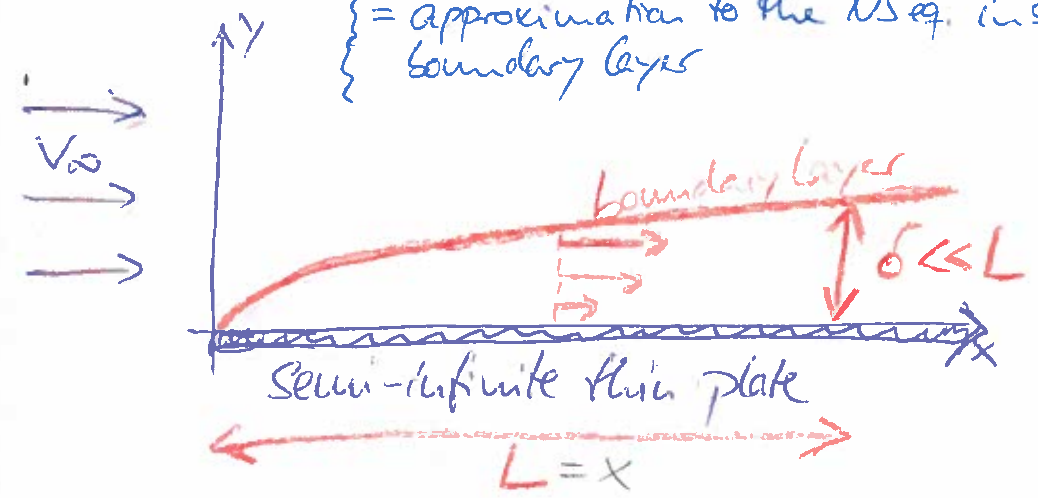 = approximation to the NS eq. ins
boundary layer
y
V∞
boundary layer
δ << L
x
semi-infinite thin plate
L = x